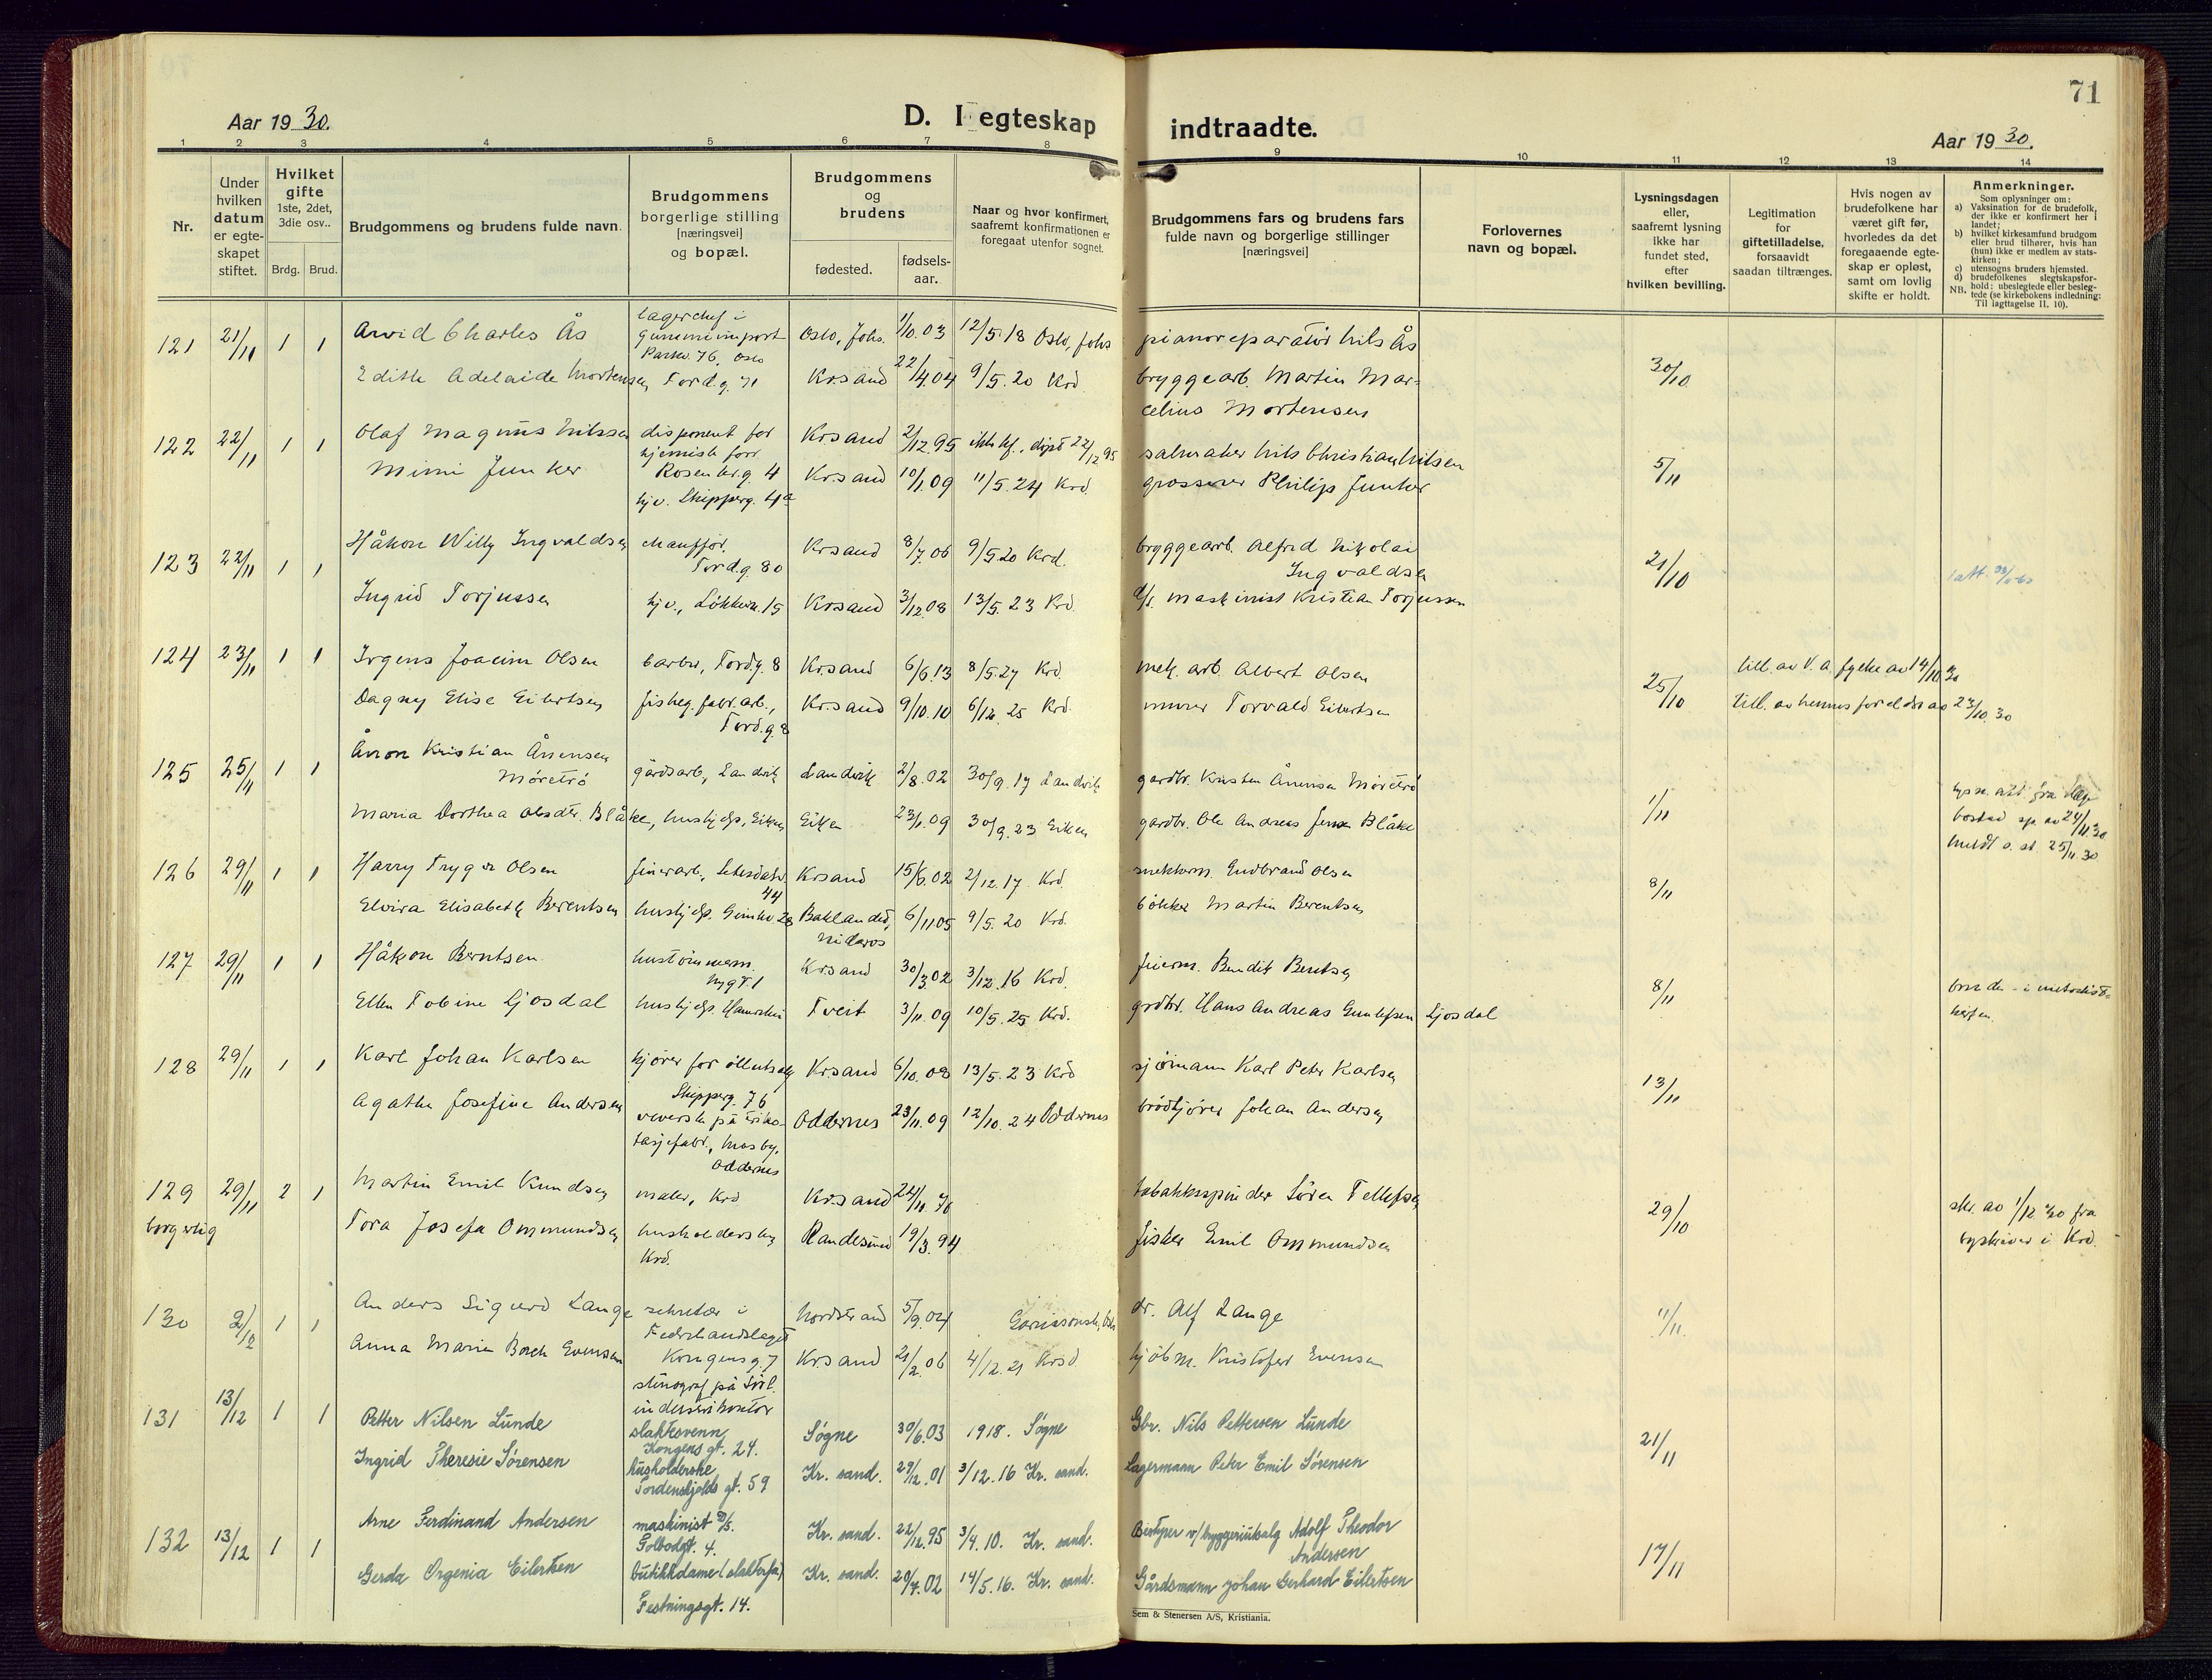 71
Aar 1930.
D. I egteskap indtraadte.
Aar 1930.
1 2 3 4 5 6 7 8 9 10 11 12 13 14
Nr.
Under hvilken datum er egteskapet stiftet.
Hvilket gifte 1ste, 2det, 3die osv..
Brdg. Brud.
Brudgommens og brudens fulde navn.
Brudgommens borgerlige stilling [næringsvei] og bopæl.
Brudgommens og brudens
fødested. fødselsaar.
Naar og hvor konfirmert, saafremt konfirmationen er foregaat utenfor sognet.
Brudgommens fars og brudens fars fulde navn og borgerlige stillinger [næringsvei]
Forlovernes navn og bopæl.
Lysningsdagen eller, saafremt lysning ikke har fundet sted, efter hvilken bevilling.
Legitimation for giftetilladelse, forsaavidt saadan tiltrænges.
Hvis nogen av brudefolkene har været gift før, hvorledes da det foregaaende egteskap er opløst, samt om lovlig skifte er holdt.
Anmerkninger.
Som oplysninger om:
a) Vaksination for de brudefolk, der ikke er konfirmert her i landet;
b) hvilket kirkesamfund brudgom eller brud tilhører, hvis han (hun) ikke er medlem av statskirken;
c) utensogns bruders hjemsted.
d) brudefolkenes slegtskapsforhold: ubeslegtede eller beslegtede (se kirkebokens indledning: NB. Til iagttagelse II. 10).
121 21/11 1 1 Arvid Charles Ås lagerchef i gummiimport Parkv. 76, Oslo Oslo, Johs. 1/10.03 12/5.18 Oslo, Johs pianoreparatør Nils Ås
Edith Adelaide Mortensen Tord.g. 71 Krsand 22/4.04 9/5.20 Krd bryggearb. Martin Marcelius Mortensen 30/10
122 22/11 1 1 Olaf Magnus Nilssen disponent for kjemisk forr. Rosenkr.g. 4 Krsand 2/12.95 ikke kf., døpt 22/12 95 salmaker Nils Christian Nilsen
Mimi Junker hjv. Skipperg. 4a Kr.sand 10/1.09 11/5.24 Krd. grosserer Philip Junker 5/11
123 22/11 1 1 Håkon Willy Ingvaldsen chauffør. Tord.g. 80 Krsand 8/7.06 9/5.20 Krd. bryggearb. Alfred Nikolai Ingvaldsen
Ingrid Torjussen hjv., Løkkev. 15 Krsand 3/12.08 13/5.23 Krd. d/s. maskinist Kristian Torjussen 21/10
124 23/11 1 1 Irgens Joacim Olsen barber, Tord.g. 8 Krsand 6/6.13 8/5.27 Krd. mek. arb. Albert Olsen till. av V.a. fylke av 14/10 30
Dagny Elise Eilertsen fiskeg. fabr. arb., Tord.g. 8 Kr.sand 9/10.10 6/12.25 Krd. murer Torvald Eilertsen 25/10 till. av hennes foreldre av 23/10.30
125 25/11 1 1 Ånon Kristian Ånensen Møretrø gårdsarb., Landvik Landvik 2/8.02 30/9.17 Landvik gardbr. Kristen Ånensen Møretrø
Maria Dorthea Olsdtr. Blåke, hushjelp, Eiken Eiken 23/1.09 30/9.23 Eiken gardbr. Ole Andreas Jensen Blåke 1/11
126 29/11 1 1 Harry Trygve Olsen finerarb., Setesdalsv. 44 Krsand 15/6.02 2/12.17 Krd. snekkerm. Gudbrand Olsen
Elvira Elisabeth Berentsen hushjelp. Gimlev. 28 Baklandet, Nidaros 6/11 05 9/5.20 Krd. bøkker Martin Berentsen 8/11
127 29/11 1 1 Håkon Berntsen hustømmerm. Krsand 30/3.02 3/12.16 Krd. feierm. Bendik Berntsen
Ellen Tobine Ljosdal hushjelp. Tveit 3/11.09 10/5.25 Krd. grdbr. Hans Andreas Gunlefsen Ljosdal 8/11 bruden i metodistkirken.
128 29/11 1 1 Karl Johan Karlsen kjører for ølutsalg Skipperg. 76 Krsand 6/10.08 13/5.23 Krd sjømann Karl Peter Karlsen
Agathe Josefine Andersen veverske på trikotasjefabr., Mosby, Oddernes Oddernes 23/11.09 12/10.24 Oddernes brødkjører Johan Andersen 13/11
129 29/11 2 1 Martin Emil Knudsen maler, Krd Krsand 24/11.76 tobakksspinder Søren Tellefsen
borgerlig Tora Josefa Ommundsen husholderske Krd. Randesund 19/3.94 fisker Emil Ommundsen 29/10 skr. av 1/12 30 fra byskriver i Krd.
130 2/12 1 1 Anders Sigurd Lange sekretær i Fedrelandslaget Kongensg. 7 Nordstrand 5/9.04 Garnisonsk., Oslo dr. Alf Lange
Anna Marie Borch Evensen stenograf på Sørl. industrikontor Krsand 21/2.06 4/12.21 Krsd kjøbm. Kristofer Evensen 11/11.
131 13/12 1 1 Petter Nilsen Lunde slaktersvenn Kongens gt. 24. Søgne 30/6.03 1918. Søgne Gbr. Nils Pettersen Lunde
Ingrid Theresie Sørensen husholderske Tordenskjolds gt. 59 Kr. sand. 29/12.01 3/12.16 Kr. sand. Lagermann Peter Emil Sørensen 21/11
132 13/12 1 1 Arne Ferdinand Andersen maskinist D/S. Holbodgt. 4. Kr. sand. 22/12.95 3/4.10. Kr. sand. Bestyrer v/bryggeriutsalg Adolf Theodor Andersen
Gerda Orgenia Eilertsen butikkdame (slakterfa) Festningsgt. 14. Kr. sand. 20/7.02 14/5.16. Kr. sand. Gårdsmann Johan Gerhard Eilertsen 17/11
Sem & Stenersen A/S, Kristiania.